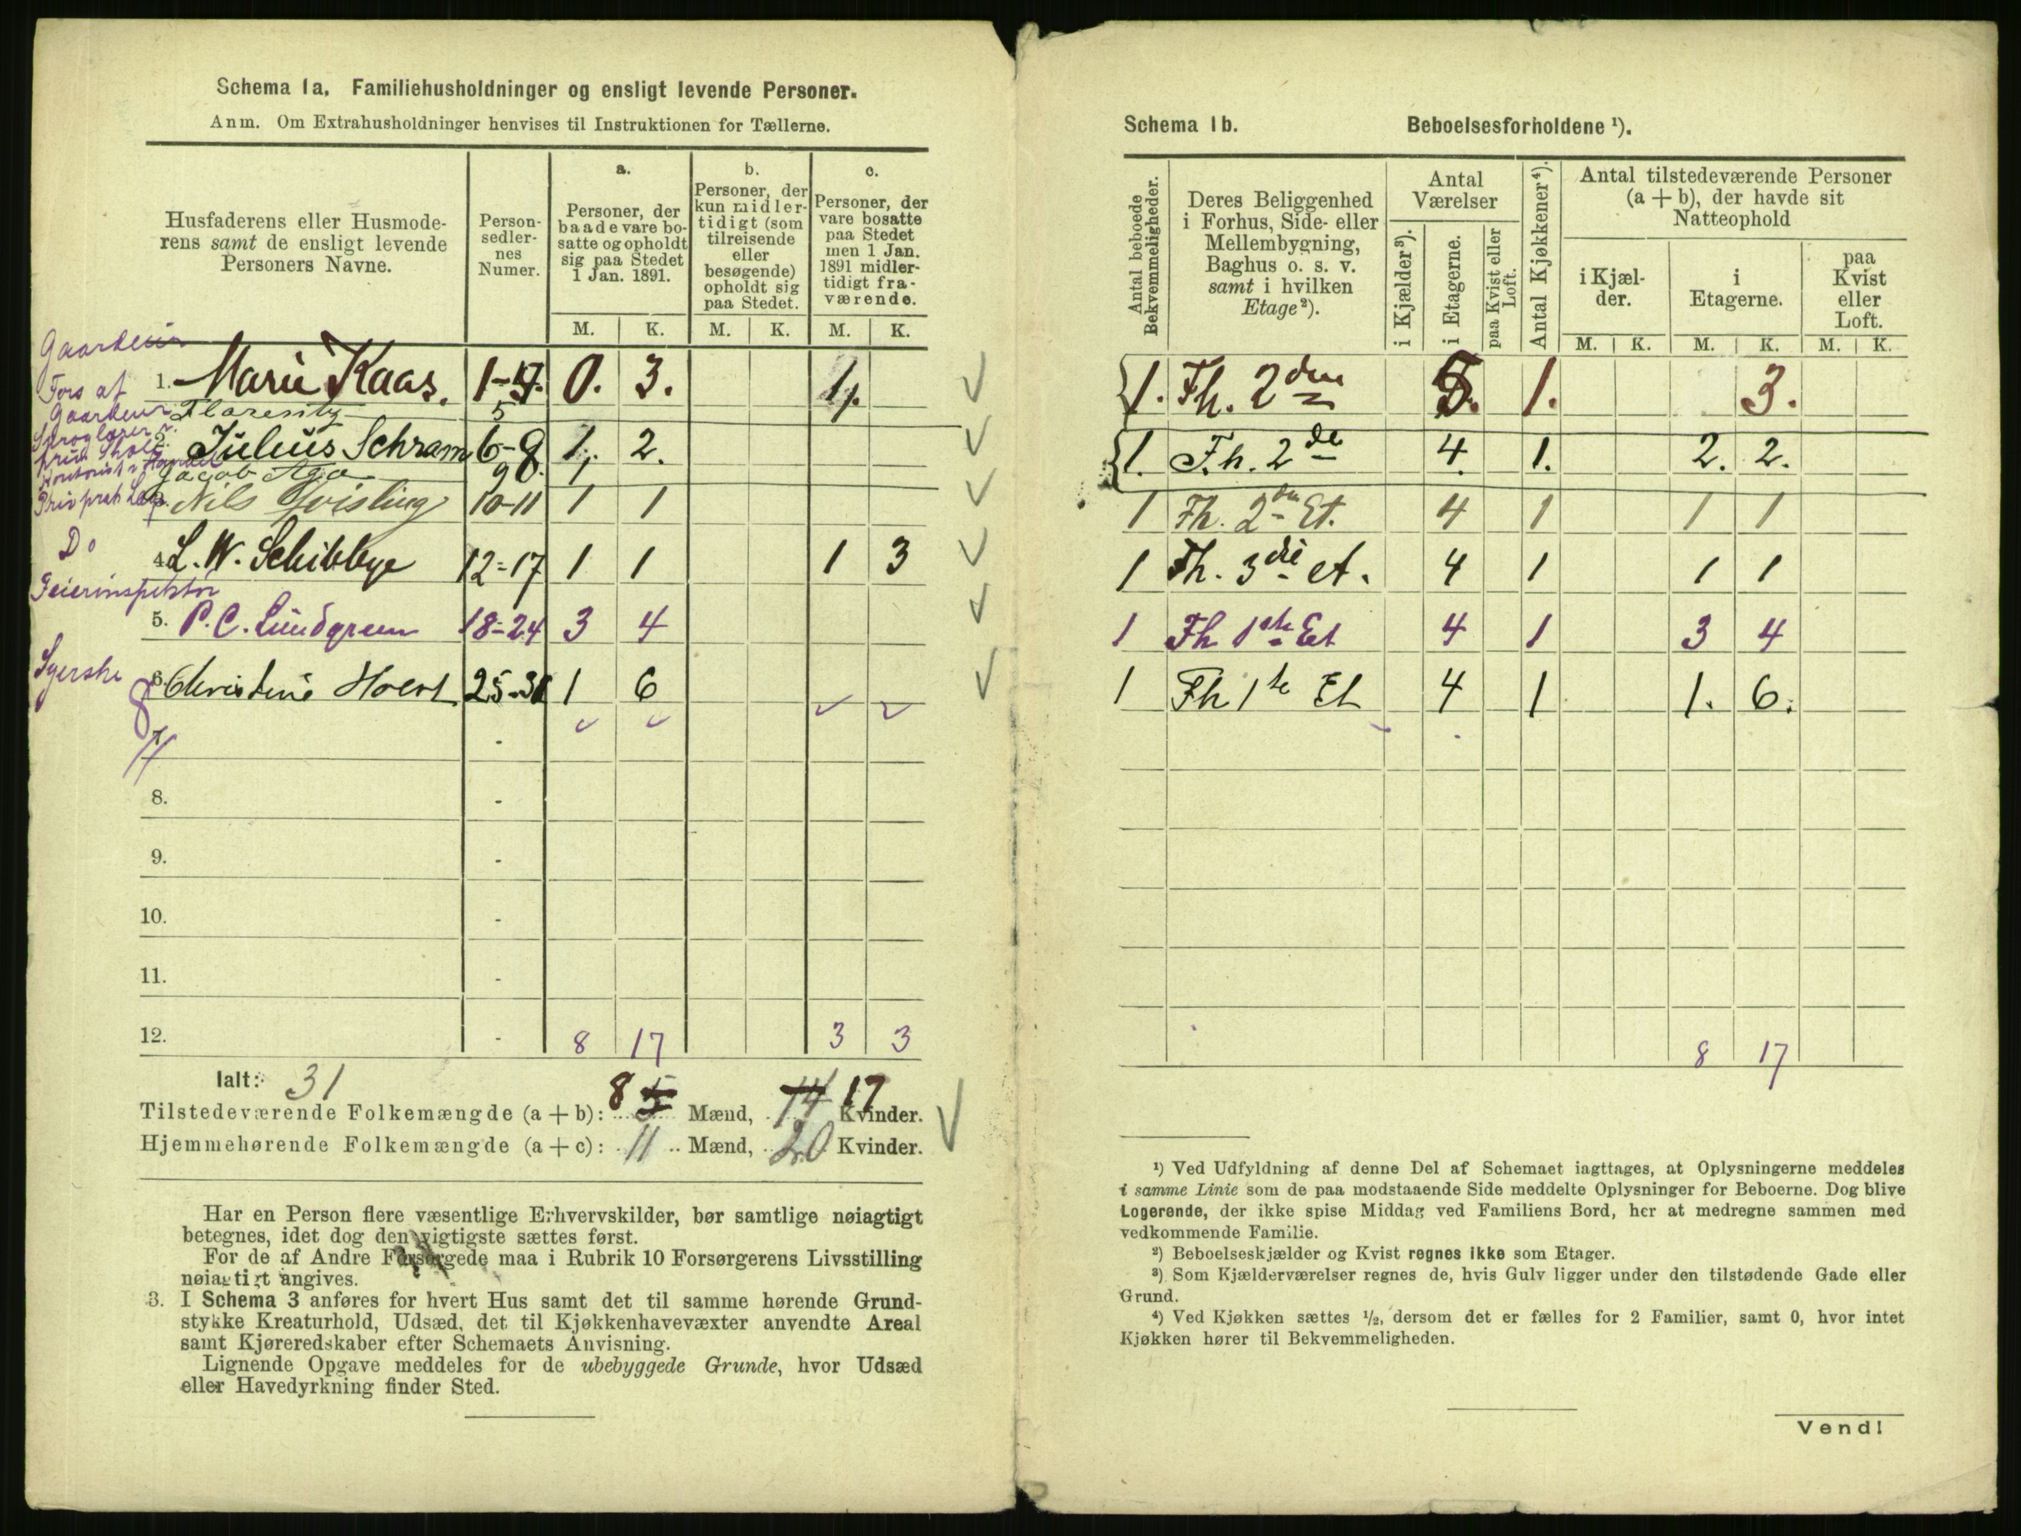 Schema 1a. Familiehusholdninger og ensligt levende Personer.
Anm. Om Extrahusholdninger henvises til Instruktionen for Tællerne.
Husfaderens eller Husmode-
rens samt de ensligt levende
Personers Navne.
Person-
sedler-
nes
Numer.
a.
Personer, der
baade vare bo-
satte og opholdt
sig paa Stedet
1 Jan. 1891.
b.
Personer, der
kun midler-
tidigt (som
tilreisende
eller
besøgende)
opholdt sig
paa Stedet.
c.
Personer, der
vare bosatte
paa Stedet
men 1 Jan.
1891 midler-
tidigt fra-
værende.
M. K. M. K. M. K.
1. Marie Kaas. 0. 3. 1.
Fors af
5
2. Julius Schram 6-8. 1, 2.
Jacob 9 1
3. Nils 10-11 1 1
Do
4. L. W. Schibbye 12-17 1 1 1 3
Feierinspektør
5. P. C. Lundgreen 18-24 3 4
Syerske
6. Christine 25-31 1 6
8
7. -
11
8. -
9. -
10. -
11. -
12. - 8 17 3 3
Ialt: 31
Tilstedeværende Folkemængde (a + b): 8 5 Mænd, 14 17 Kvinder.
Hjemmehørende Folkemængde (a + c): 11 Mænd, 20 Kvinder.
Har en Person flere væsentlige Erhvervskilder, bør samtlige nøiagtigt
betegnes, idet dog den vigtigste sættes først.
For de af Andre Forsørgede maa i Rubrik 10 Forsørgerens Livsstilling
nøiagtigt angives.
3. I Schema 3 anføres for hvert Hus samt det til samme hørende Grund-
stykke Kreaturhold, Udsæd, det til Kjøkkenhavevæxter anvendte Areal
samt Kjøreredskaber efter Schemaets Anvisning.
Lignende Opgave meddeles for de ubebyggede Grunde, hvor Udsæd
eller Havedyrkning finder Sted.
Schema 1b. Beboelsesforholdene ¹).
Antal beboede
Bekvemmeligheder.
Deres Beliggenhed
i Forhus, Side- eller
Mellembygning,
Baghus o. s. v.
samt i hvilken
Etage²).
Antal
Værelser
i Kjælder³).
i Etagerne.
paa Kvist eller
Loft.
Antal Kjøkkener⁴).
Antal tilstedeværende Personer
(a + b), der havde sit
Natteophold
i Kjæl-
der.
i
Etagerne.
paa
Kvist
eller
Loft.
M. K. M. K. M. K.
1. Fh. 2den 5. 1. 3.
1. Fh. 2de 4. 1. 2. 2.
1 Fh. 2den Et. 4 1 1 1
1 Fh. 3die et. 4 1 1 1
1 Fh 1ste Et 4 1 3 4
1 Fh 1ste Et 4 1 1. 6.
8 17
¹) Ved Udfyldning af denne Del af Schemaet iagttages, at Oplysningerne meddeles
i samme Linie som de paa modstaaende Side meddelte Oplysninger for Beboerne. Dog blive
Logerende, der ikke spise Middag ved Familiens Bord, her at medregne sammen med
vedkommende Familie.
²) Beboelseskjælder og Kvist regnes ikke som Etager.
³) Som Kjælderværelser regnes de, hvis Gulv ligger under den tilstødende Gade eller
Grund.
⁴) Ved Kjøkken sættes ½, dersom det er fælles for 2 Familier, samt 0, hvor intet
Kjøkken hører til Bekvemmeligheden.
Vend!